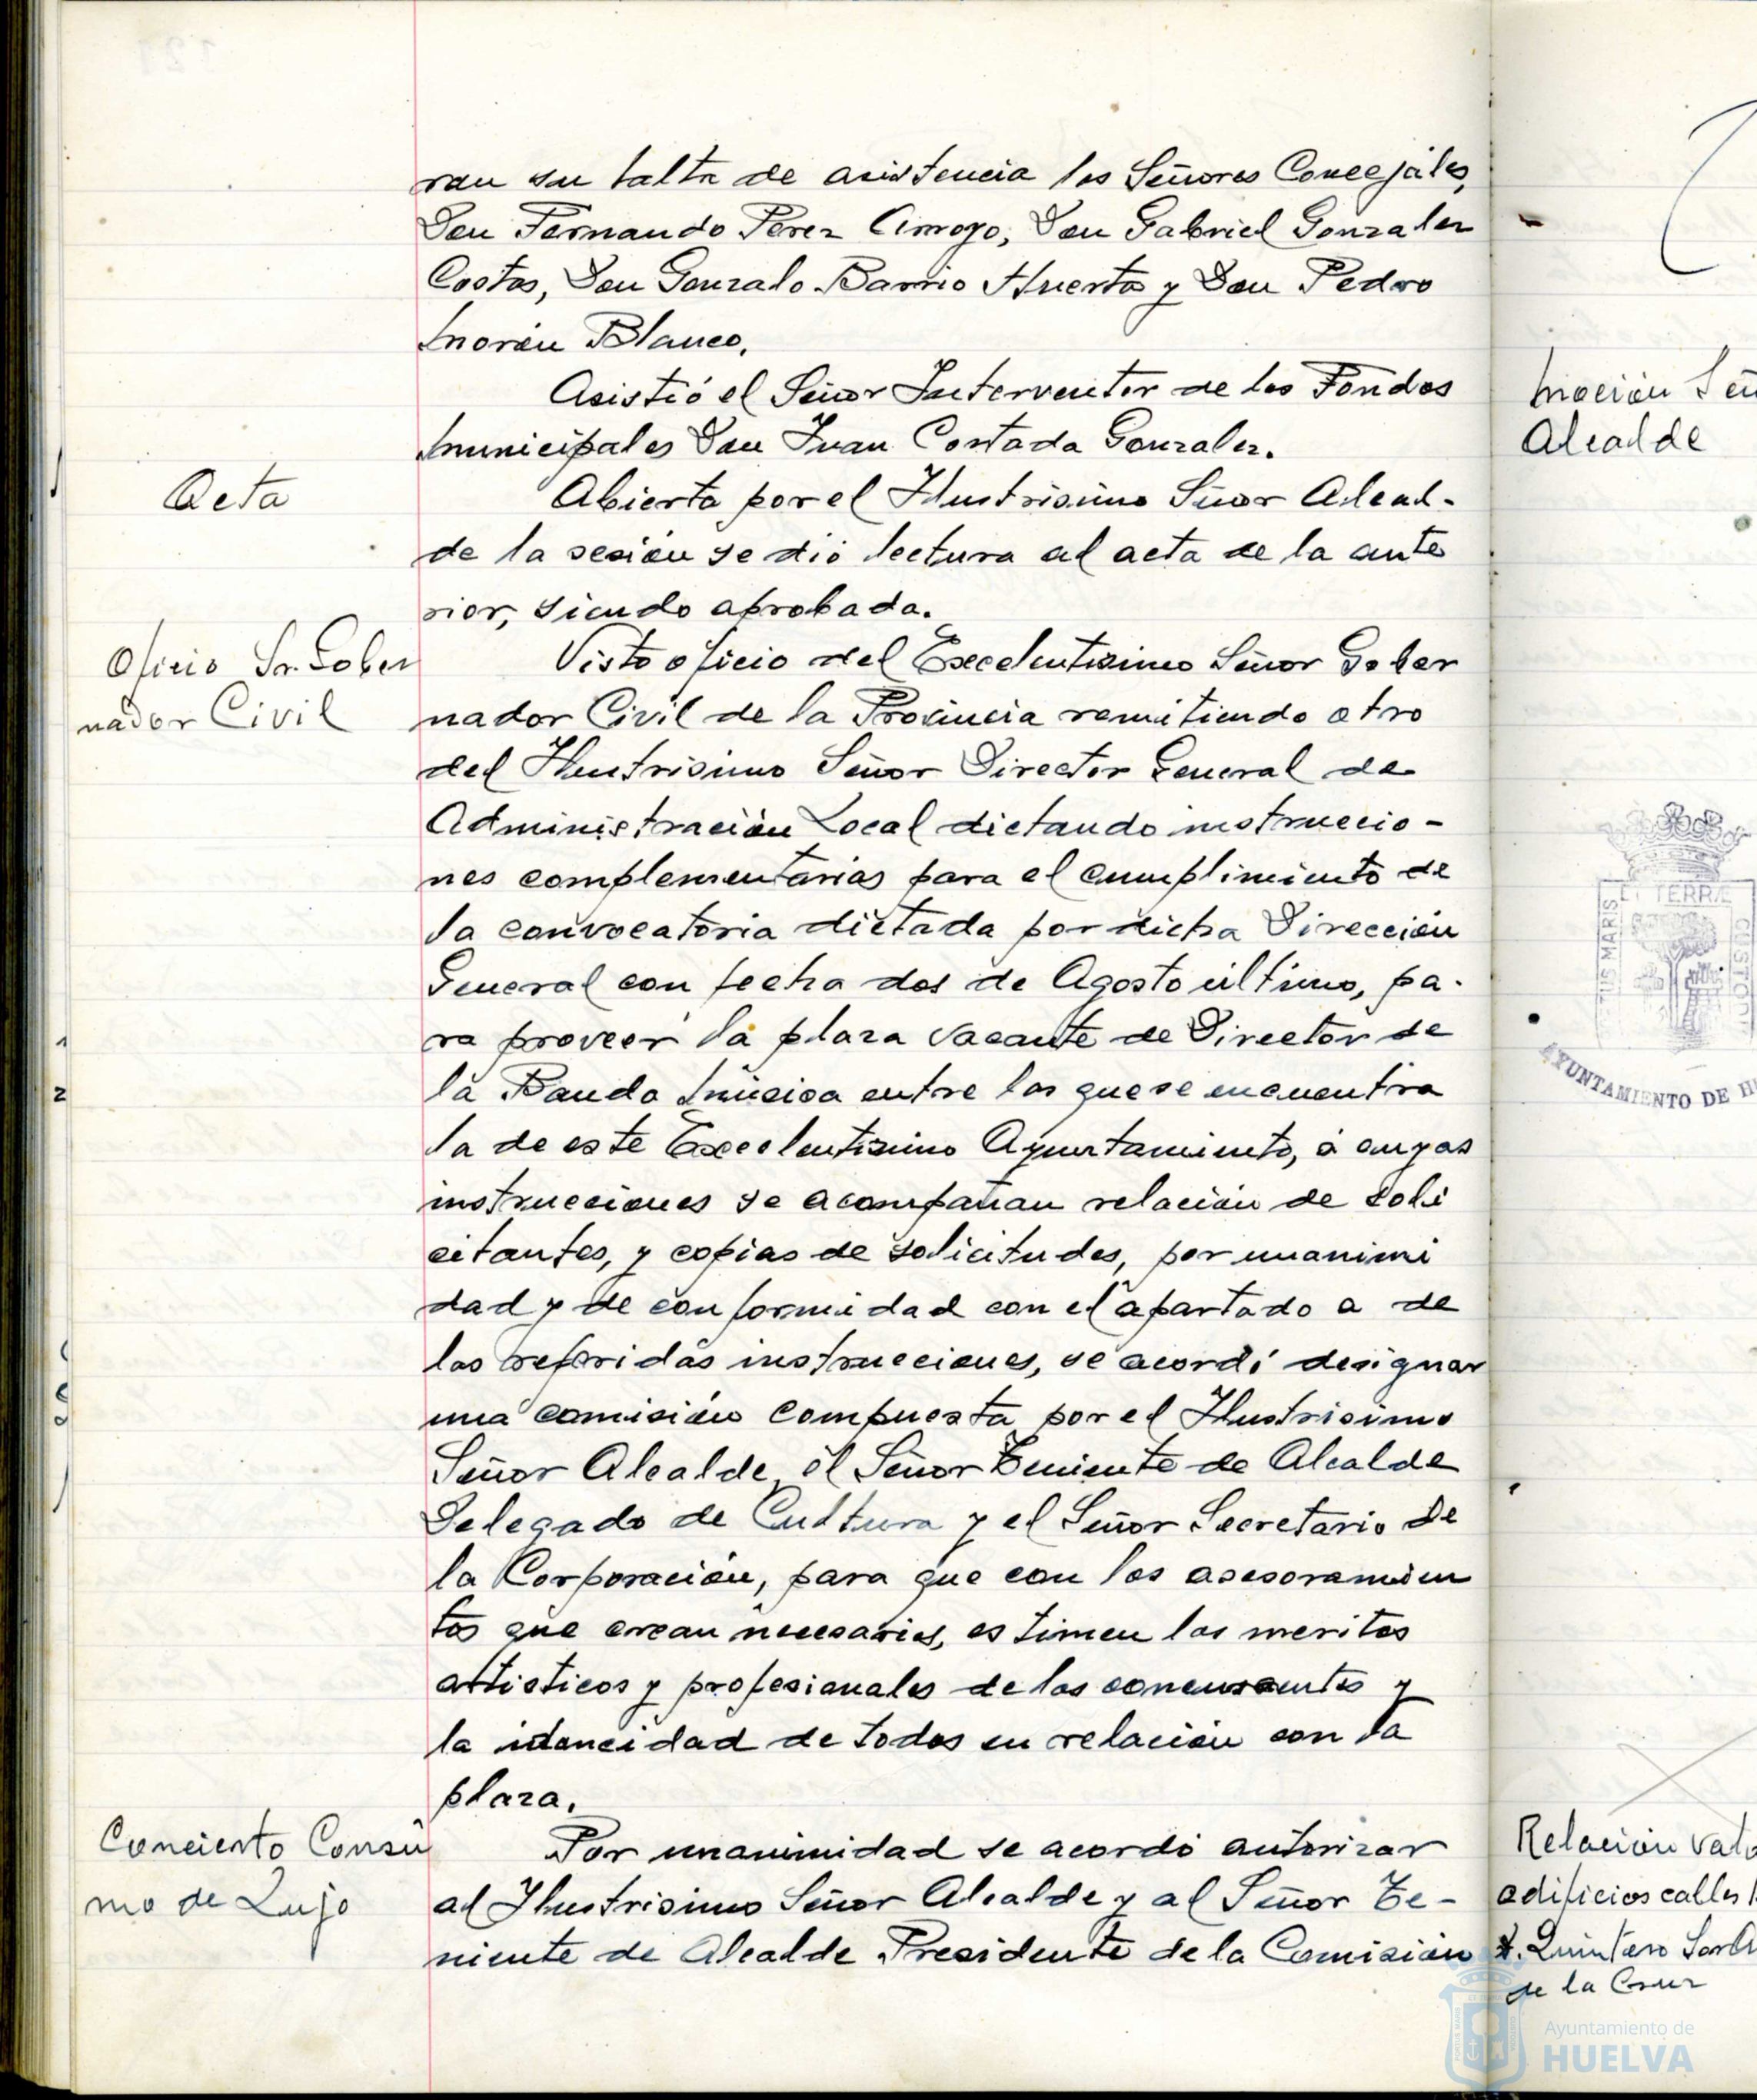 ran su falta de asistencia los Señores Concejales,
Don Fernando Perez Arroyo, Don Gabriel Gonzalez
Costas, Don Gonzalo Barrio Huerta y Don Pedro
Morón Blanco.
Asistió el Señor Interventor de los Fondos
Municipales Don Juan Contada Gonzalez.
Acta
Abierta por el Ilustrisimo Señor Alcal-
de la sesión se dió lectura al acta de la ante
rior, siendo aprobada.
Oficio Sr. Gober
nador Civil
Visto oficio del Excelentisimo Señor Gober
nador Civil de la Provincia remitiendo otro
del Ilustrisimo Señor Director General de
Administración Local dictando instruccio-
nes complementarias para el cumplimiento de
la convocatoria dictada por dicha Dirección
General con fecha dos de Agosto último, pa-
ra proveer la plaza vacante de Director de
la Banda Música entre las que se encuentra
la de este Excelentisimo Ayuntamiento, á cuyas
instrucciones se acompañan relación de soli
citantes, y copias de solicitudes, por unanimi
dad y de conformidad con el apartado a de
las referidas instrucciones, se acordó designar
una comisión compuesta por el Ilustrisimo
Señor Alcalde, el Señor Teniente de Alcalde
Delegado de Cultura y el Señor Secretario de
la Corporación, para que con los asesoramien
tos que crean necesarios, estimen los meritos
artisticos y profesionales de los concursantes y
la idoneidad de todos en relación con la
plaza.
Concierto Consu
mo de Lujo
Por unanimidad se acordó autorizar
al Ilustrisimo Señor Alcalde y al Señor Te-
niente de Alcalde Presidente de la Comisión
Moción Señ
Alcalde
TUS MARIS ET TERRÆ CUSTODI
AYUNTAMIENTO DE H
Relación valo
edificios calles
Quintero
de la Cruz
Ayuntamiento de
HUELVA